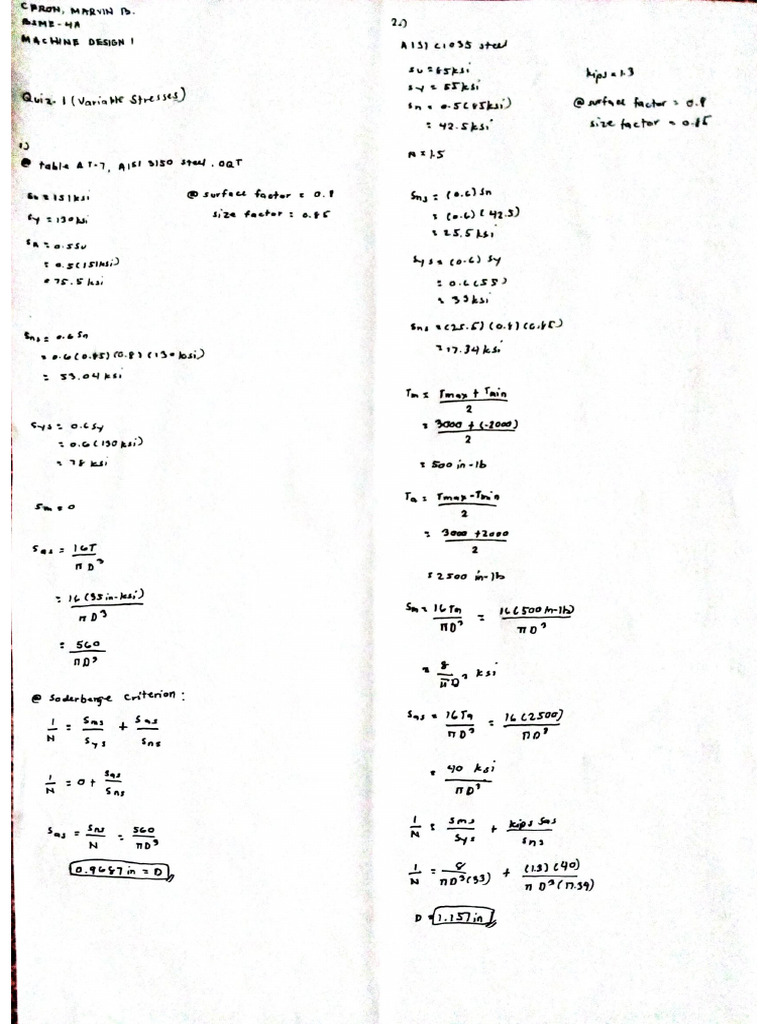 CPRON, MARVIN B.
BSME-4A
MACHINE DESIGN 1
Quiz-1 (Variable Stresses)
1)
@ table AT-7, AISI 3150 steel, OQT
Su = 151 ksi
@ surface factor = 0.8
Sy = 130 ksi
size factor = 0.85
Sn = 0.5Su
= 0.5(151ksi)
= 75.5 ksi
Sns = 0.6 Sn
= 0.6(0.85)(0.8)(130ksi)
= 53.04 ksi
Sys = 0.6Sy
= 0.6(130ksi)
= 78 ksi
Sm = 0
Sas = 16T
πD³
= 16(35in-ksi)
πD³
= 560
πD³
@ Soderbange Criterion:
1/N = Sms/Sys + Sas/Sns
1/N = 0 + Sas/Sns
Sas = Sns/N = 560/πD³
0.9687in = D
2.)
AISI C1035 steel
Su = 85ksi
kips = 1.3
Sy = 55ksi
Sn = 0.5(85ksi)
@ surface factor = 0.8
= 42.5ksi
size factor = 0.85
N = 1.5
Sns = (0.6)Sn
= (0.6)(42.5)
= 25.5 ksi
Sys = (0.6) Sy
= 0.6(55)
= 33ksi
Sns = (25.5)(0.8)(0.85)
= 17.34 ksi
Tm = Tmax + Tmin
2
= 3000 + (-2000)
2
= 500 in-lb
Ta = Tmax - Tmin
2
= 3000 + 2000
2
= 2500 in-lb
Sm = 16Tm/πD³ = 16(500in-lb)/πD³
= 8/πD³ ksi
Sas = 16Ta/πD³ = 16(2500)/πD³
= 40 ksi
πD³
1/N = Sms/Sys + kips Sas/Sns
1/N = 8/πD³(33) + (1.3)(40)/πD³(17.34)
D = 1.157in